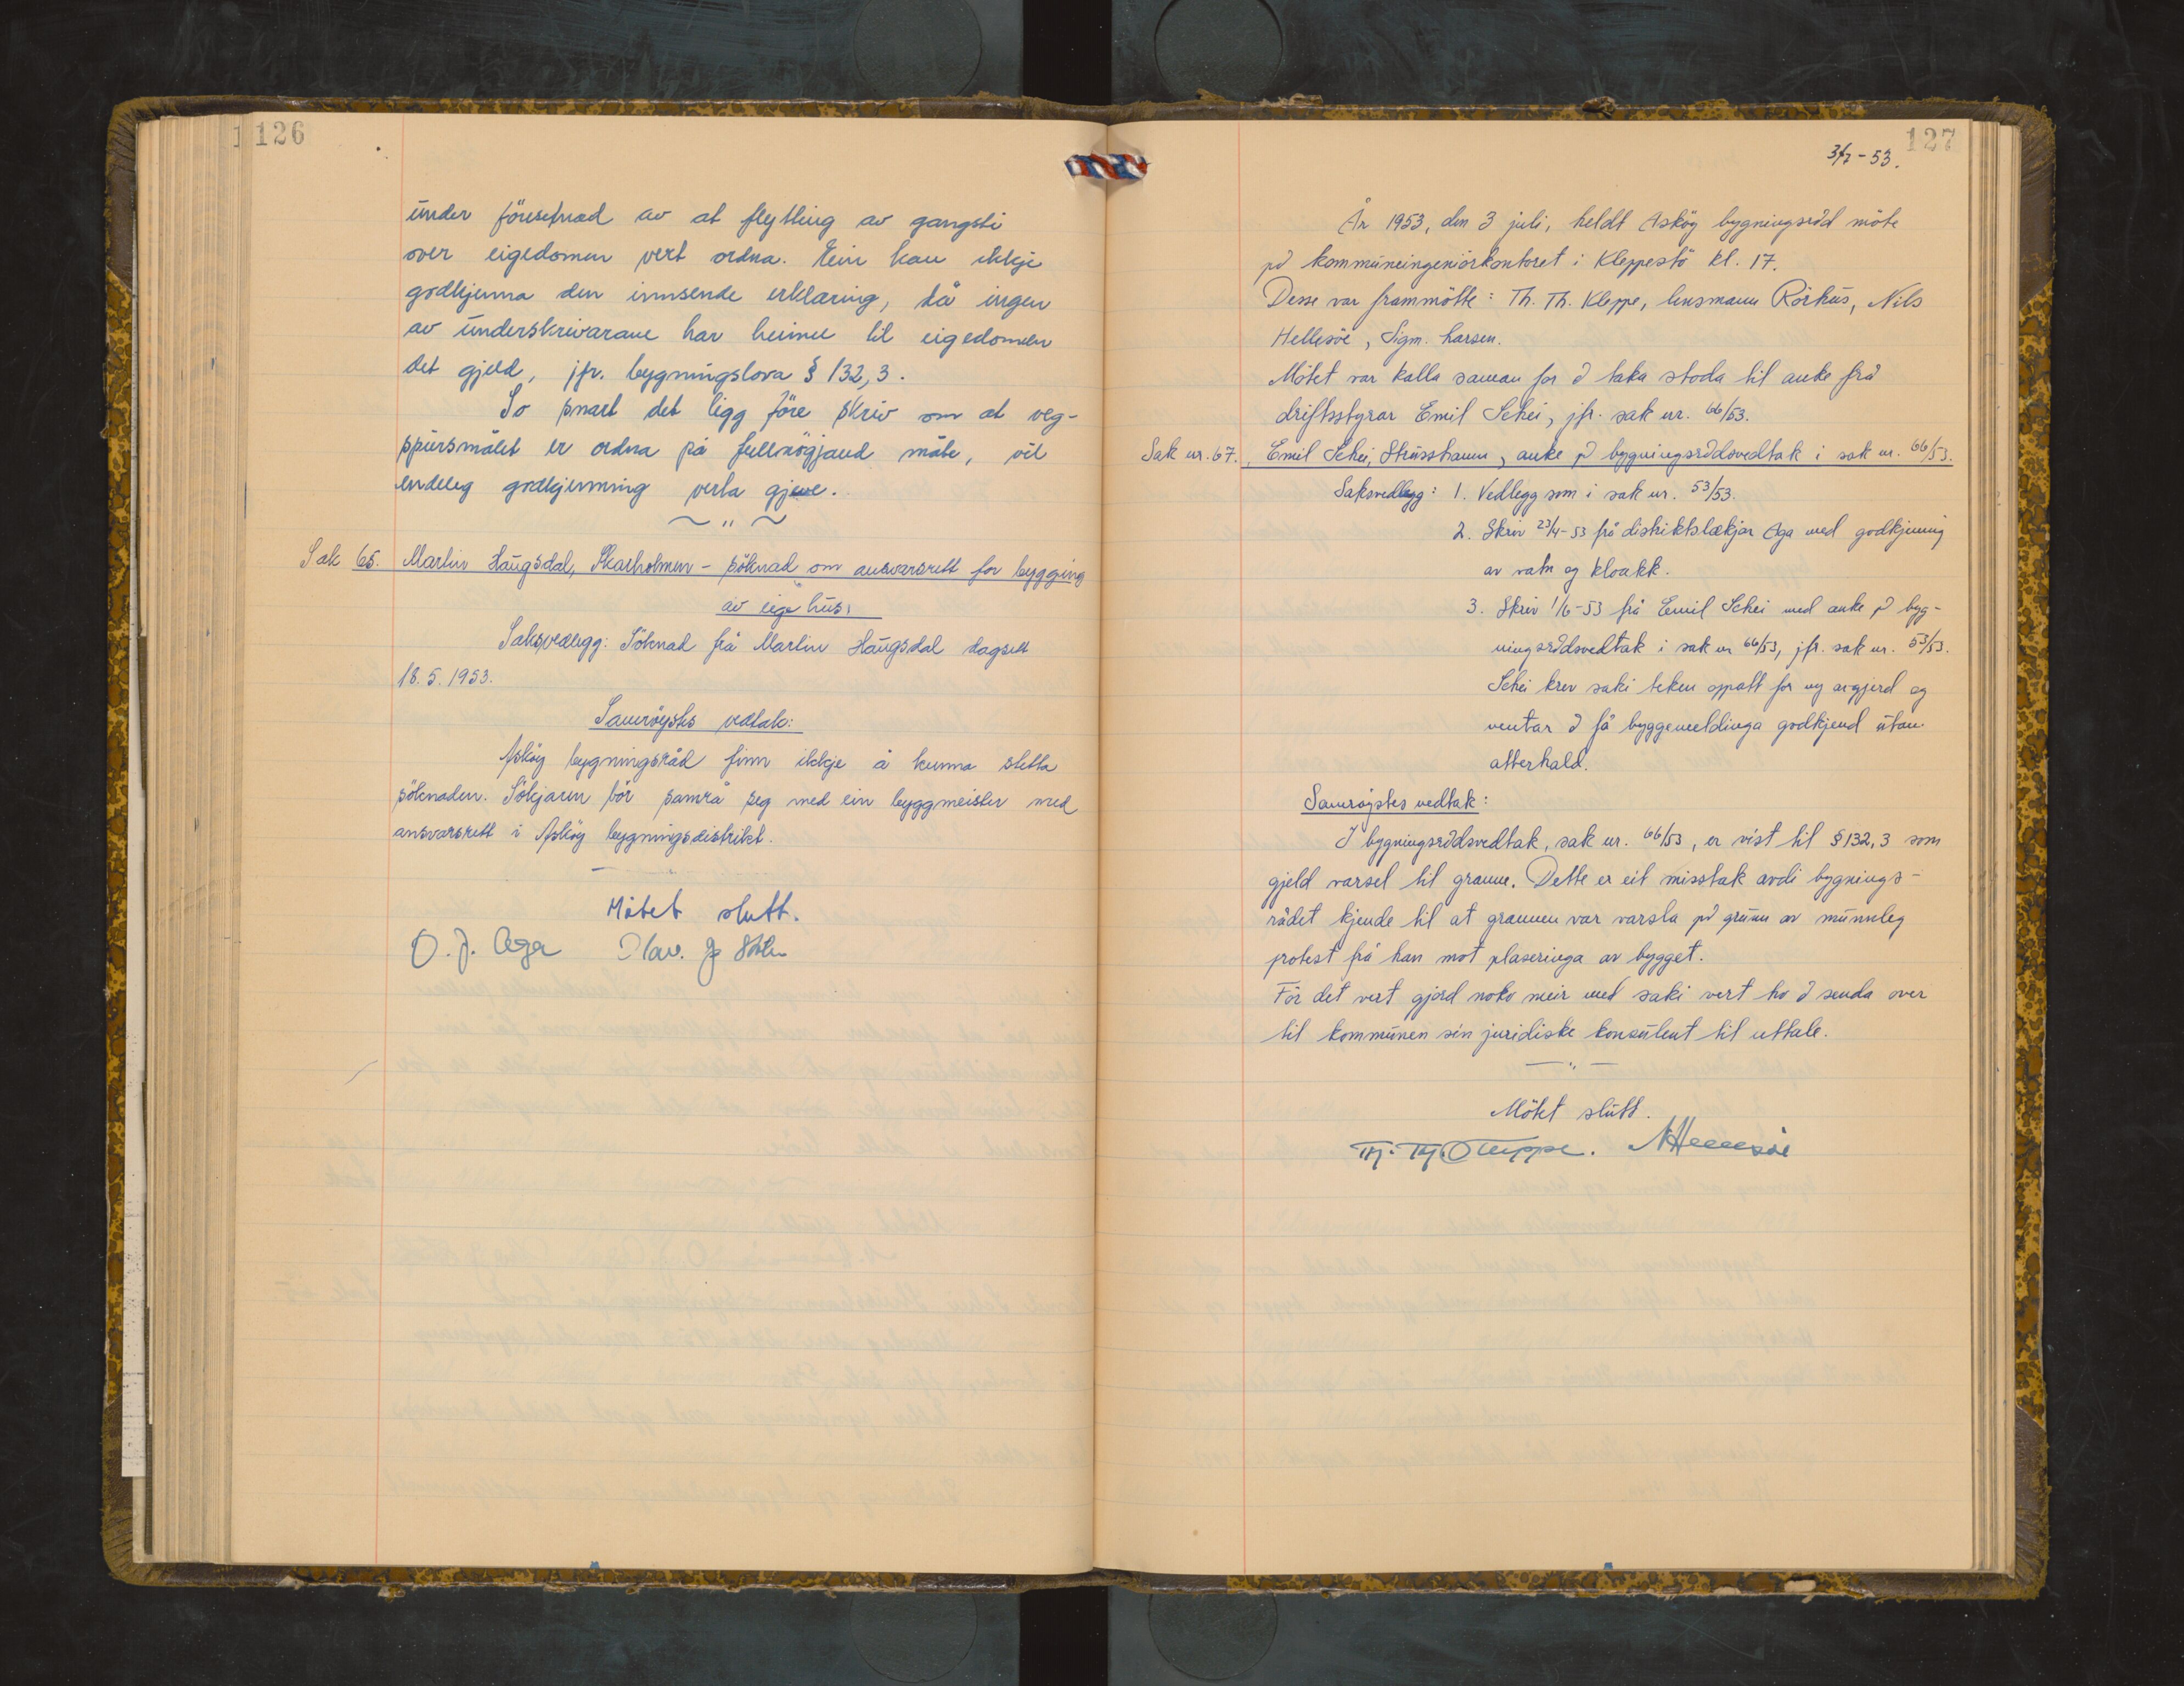 126
under föresetnad av at flytting av gangsti
over eigedomen vert ordna. Ein kan ikkje
godkjenna den innsende erklæring, då ingen
av underskrivarane har heimel til eigedomen
det gjeld, jfr. bygningslova § 132,3.
So snart det ligg före skriv om at veg-
spursmålet er ordna på fullnögjand måte, vil
endeleg godkjenning verta gjeve.
~ " ~
Sak 65. Martin Haugsdal, Skarholmen - söknad om ansvarsrett for bygging
av eige hus.
Saksvedlegg: Söknad frå Martin Haugsdal dagsett
18.5.1953.
Samröysts vedtak:
Asköy bygningsråd finn ikkje å kunna stetta
söknaden. Sökjaren bör samrå seg med ein byggmeister med
ansvarsrett i Asköy bygningsdistrikt.
Mötet slutt.
O. J. Aga Olav. J.
127
3/7-53.
År 1953, den 3 juli, heldt Asköy bygningsråd möte
på kommuneingeniörkontoret i Kleppestö kl. 17.
Desse var frammötte: Th. Th. Kleppe, lensmann Rörhus, Nils
Hellesöe, Sigm. Larsen.
Mötet var kalla saman for å taka stoda til anke frå
driftsstyrar Emil Schei, jfr. sak nr. 66/53.
Sak nr. 67. Emil Schei, Strusshamn, anke på bygningsrådsvedtak i sak nr. 66/53.
Saksvedlegg: 1. Vedlegg som i sak nr. 53/53.
2. Skriv 23/4-53 frå distriktslækjar Aga med godkjenning
av vatn og kloakk.
3. Skriv 1/6-53 frå Emil Schei med anke på byg-
ningsrådsvedtak i sak nr 66/53, jfr. sak nr. 53/53.
Schei krev saki teken oppatt for ny avgjerd og
ventar å få byggemeldinga godkjend utan
atterhald.
Samröystes vedtak:
I bygningsrådsvedtak, sak nr. 66/53, er vist til § 132,3 som
gjeld varsel til granne. Dette er eit misstak avdi bygnings-
rådet kjende til at grannen var varsla på grunn av munnleg
protest frå han mot plaseringa av bygget.
För det vert gjord noko meir med saki vert ho å senda over
til kommunen sin juridiske konsulent til uttale.
— " —
Mötet slutt.
Th. Th. Kleppe. N Hellesöe